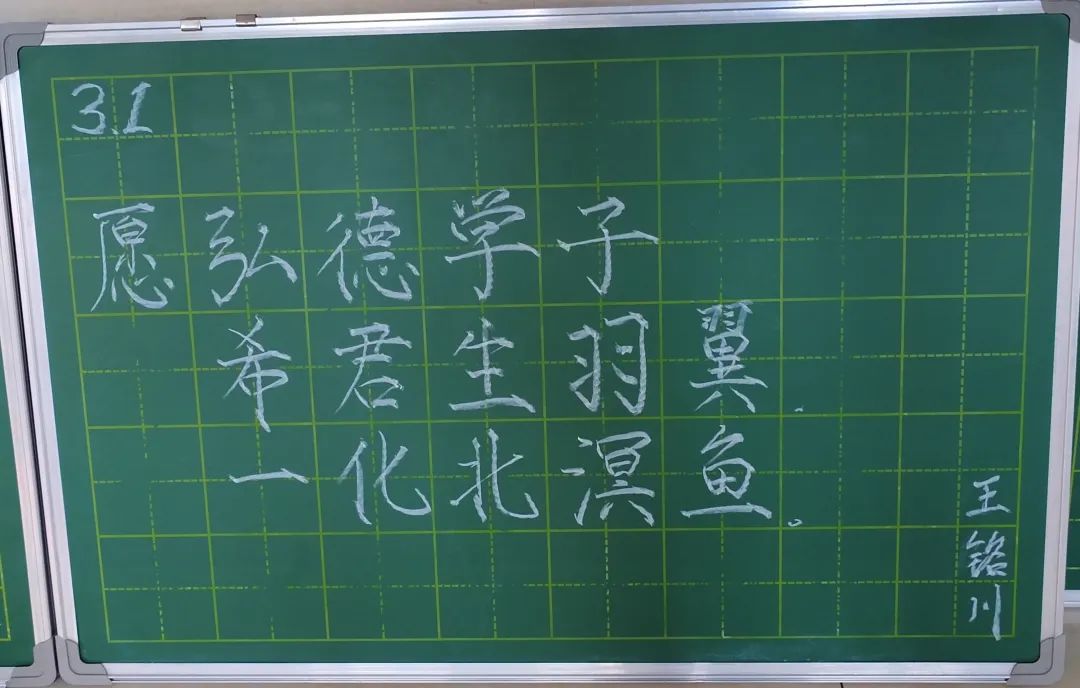 3.1
愿弘德学子
希君生羽翼，
一化北溟鱼。
王铭川